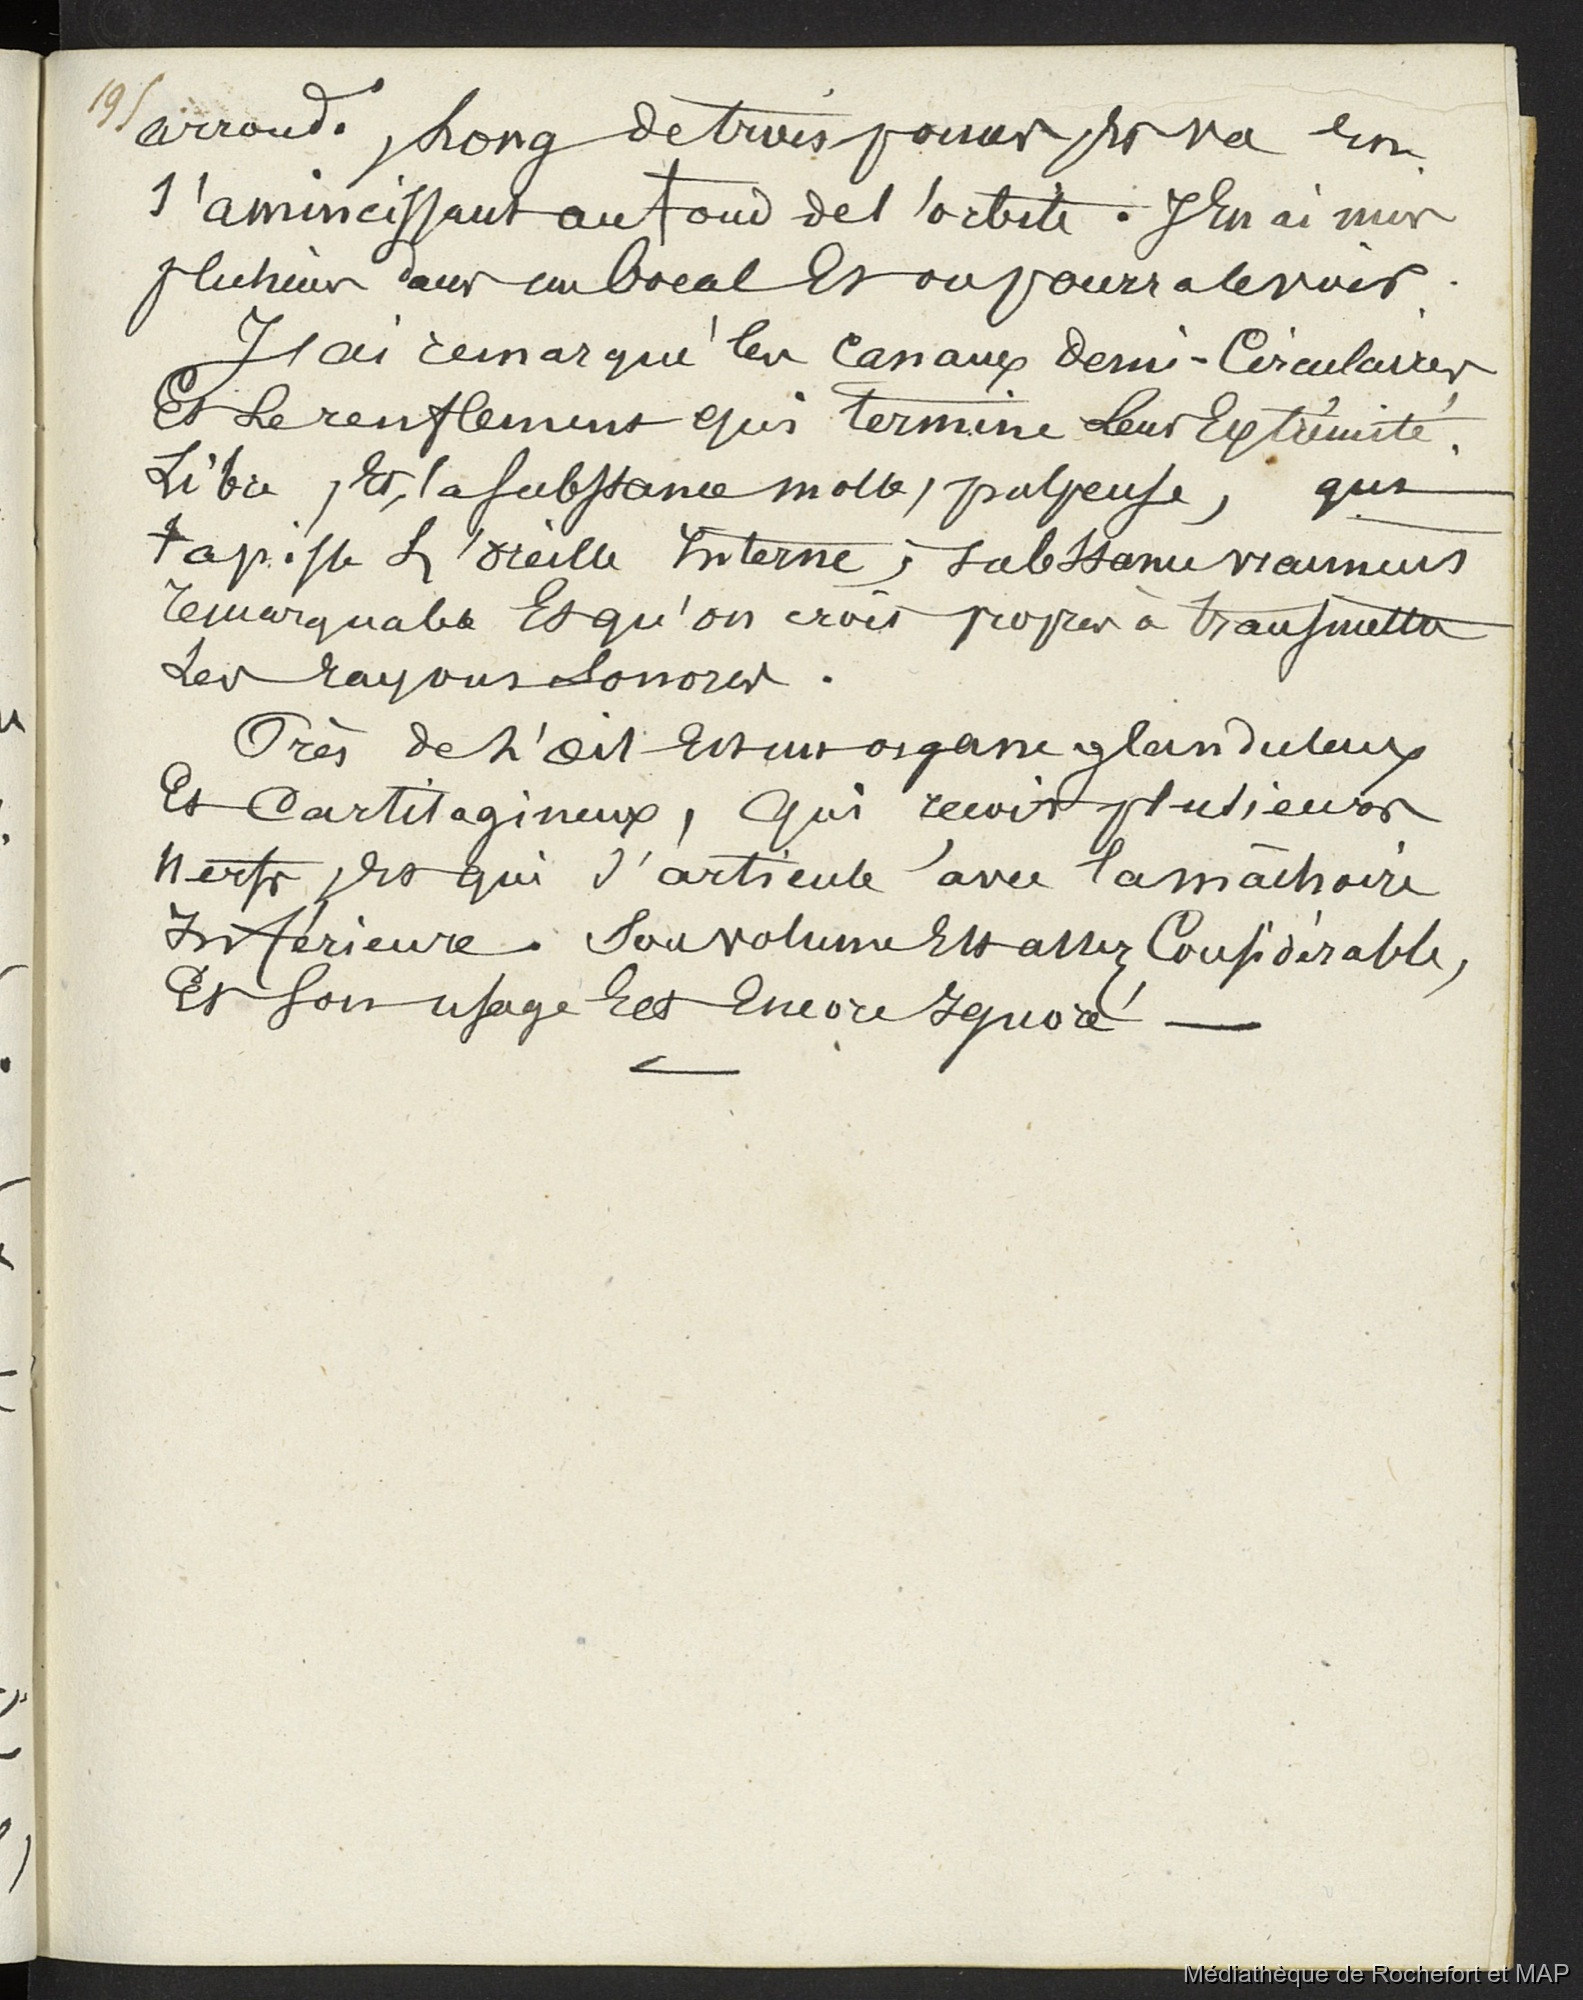 195
arrondi, Long de trois pouces, Et va En
s'amincissant au fond de l'orbite. J'En ai mis
plusieurs dans un bocal Et on pourra le voir.
J'ai remarqué les Canaux demi-Circulaires
Et Le renflement qui termine Leur Extrémité
Libre, Et la substance molle, pulpeuse, qui
tapisse L'oreille Interne; substance vraiment
remarquable Et qu'on croit propres à transmettre
Les rayons Sonores.
Près de L'œil Est un organe glanduleux
Et Cartilagineux, Qui reçoit plusieurs
nerfs, Et qui s'articule avec la mâchoire
Inférieure. Son volume Est assez Considérable,
Et Son usage Est Encore Ignoré —
Médiathèque de Rochefort et MAP